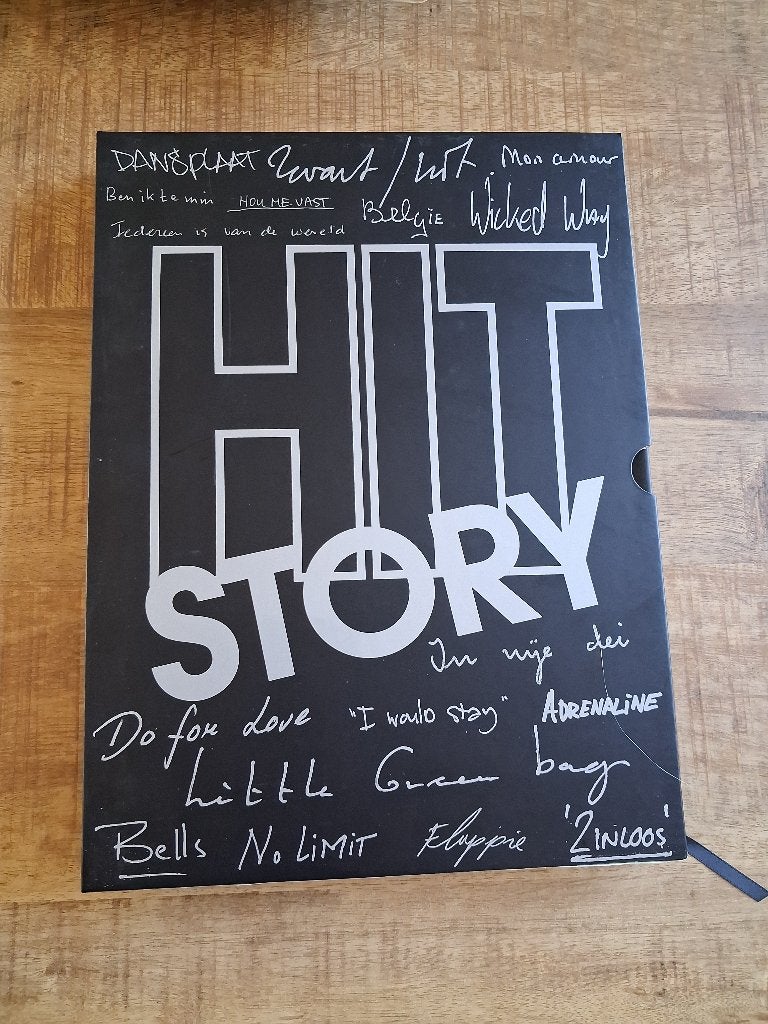 DANSPLAAT Zwart/wit Mon amour
Ben ik te min HOU ME VAST België Wicked Way
Iedereen is van de wereld
HIT
STORY
In nije dei
Do for Love "I would stay" ADRENALINE
Little Green bag
Bells No LiMIT Flappie 'ZINLOOS'